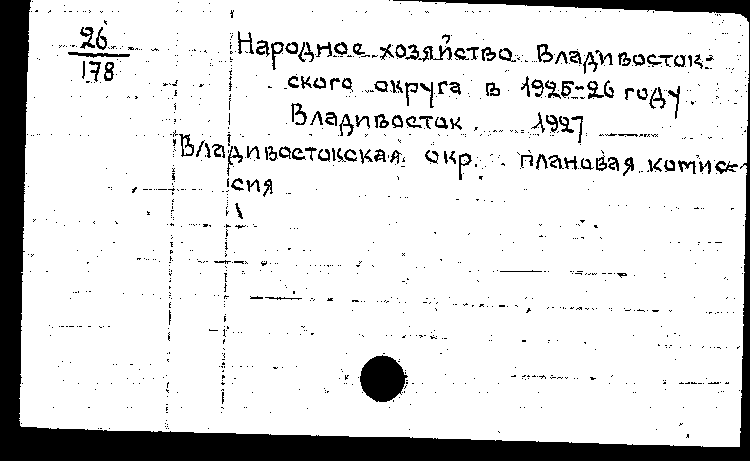 26
178
Народное хозяйство Владивосток-
ского округа в 1925-26 году.
Владивосток. 1927
Владивостокская окр. плановая комис-
сия